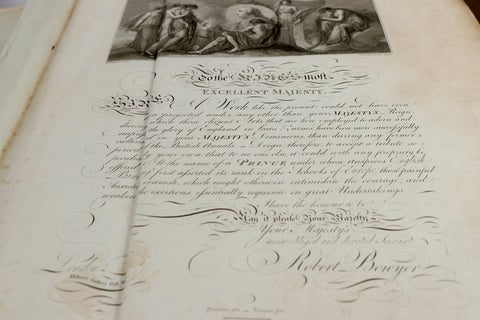 To the KING'S most
EXCELLENT MAJESTY.
SIRE,
A Work like the present could not have been
so projected under any other than your MAJESTY'S Reign
which the elegant Arts, that are here employed to adorn and
the glory of England in Lines & arms, have been more successfully
in MAJESTY'S Dominions, than during any former
of the British Annals. Deign, therefore, to accept a tribute so
peculiarly your own that to no one else it could with any propriety be
to the name of a PRINCE under whose auspices English
first asserted its rank in the Schools of Europe, those painful
which might otherwise intimidate the courage, and
weaken the exertions, essentially requisite in great Undertakings
I have the honour to be
May it please Your Majesty,
Your Majesty's
most obliged and devoted Servant
Robert Bowyer
London
Historic Gallery Pall